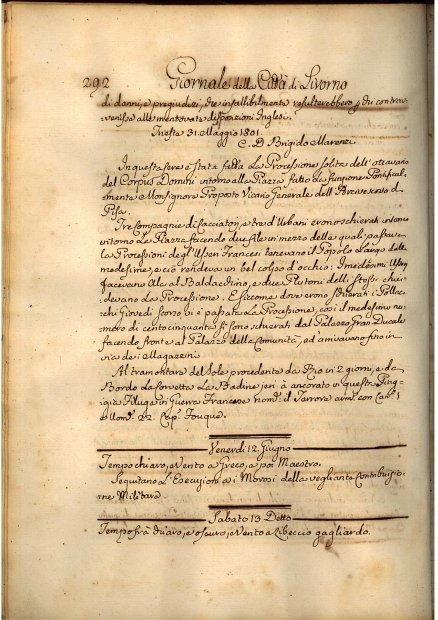 292 Giornale della Città di Livorno
di danni, e pregiudizi, che infallibilmente resulterebbero a chi contrav-
venisse alle mentovate disposizioni Inglesi.
Trieſta 31. Maggio 1801.
C. D. Brigido Marenzi
In questa sera è stata fatta La Processione solita dell' ottavario
del Corpus Domini intorno alla Piazza fatta La funzione Pontifical-
mente Monsignore Proposto Vicario Generale dell' Arcivescovo di
Pisa.
Tre Compagnie di Cacciatori, e tre d'Urbani erono schierati intorno
La Piazza facendo due file in mezzo delle quali passava
La Processione degl' Usseri Francesi tenevano il Popolo Largo dalle
medesime, e ciò rendeva un bel colpo d'occhio: I medesimi Usseri
facevano Ala al Baldacchino, e due Plutoni delli Stessi chiu-
devano La Processione. E siccome dove erono situati i Pollac-
chi Giovedì Scorso vi è passata La Processione, così il medesimo nu-
mero di cento cinquanta si sono schierati dal Palazzo Gran Ducale
facendo fronte al Palazzo della Comunità, ed arrivavano fino in
via de i Magazzini.
Al tramontare del Sole procedente da Rio in 2 giorni, e da
Bordo La Corvetta La Badine jeri à ancorato in questa Spiag-
gia Filuga in Guerra Francese nom. il Varrore arm. con Can. 1
e Uom. 22. Cap. Fouque.
Venerdì 12. Giugno
Tempo chiaro, e Vento a Greco, e poi Maestro.
Seguitano L'Esecuzioni a i Morosi della vegliante Contribuzio-
ne Militare.
Sabato 13. Detto
Tempo frà chiaro, e oscuro, e Vento a Libeccio gagliardo.